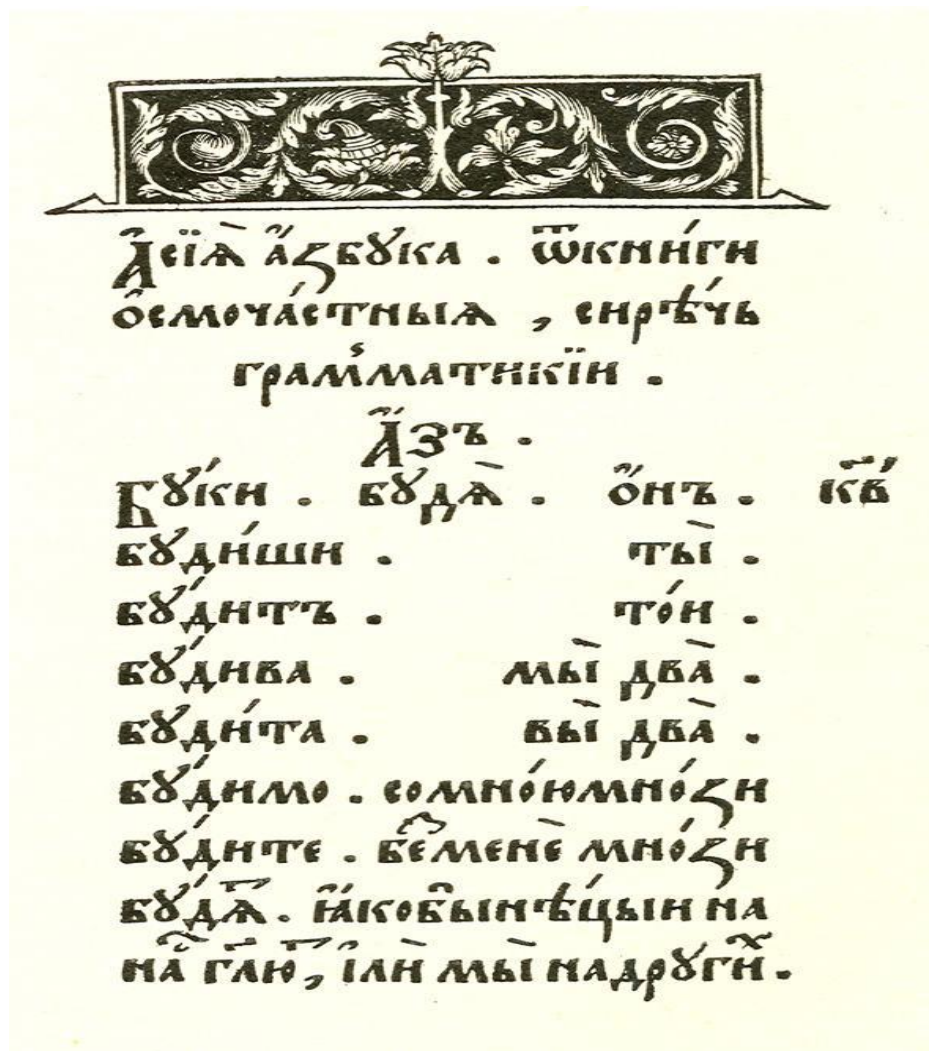 А҆сїѧ̀ а҆́ꙁбꙋка . ѿкни́ги
о҆смоча́стныѧ , сирѣ́чь
грам̾матикїи .
А҆́зъ .
Бꙋ́ки . бꙋдѧ̀ . о҆́нъ . к҃в
бꙋди́ши . ты̀ .
бꙋ́дитъ . то́и .
бꙋ́дива . мы̀ два̀ .
бꙋди́та . вы̀ два̀ .
бꙋ́димо . сомно́юмно́ꙁи
бꙋ́дите . беⷥменѐ мно́ꙁи
бꙋ́дѧⷮ . ꙗ҆́кобынѣ́цыи на
наⷭ҇ гл҃юⷮ , і҆лѝ мы̀ надрꙋгиⷯ .